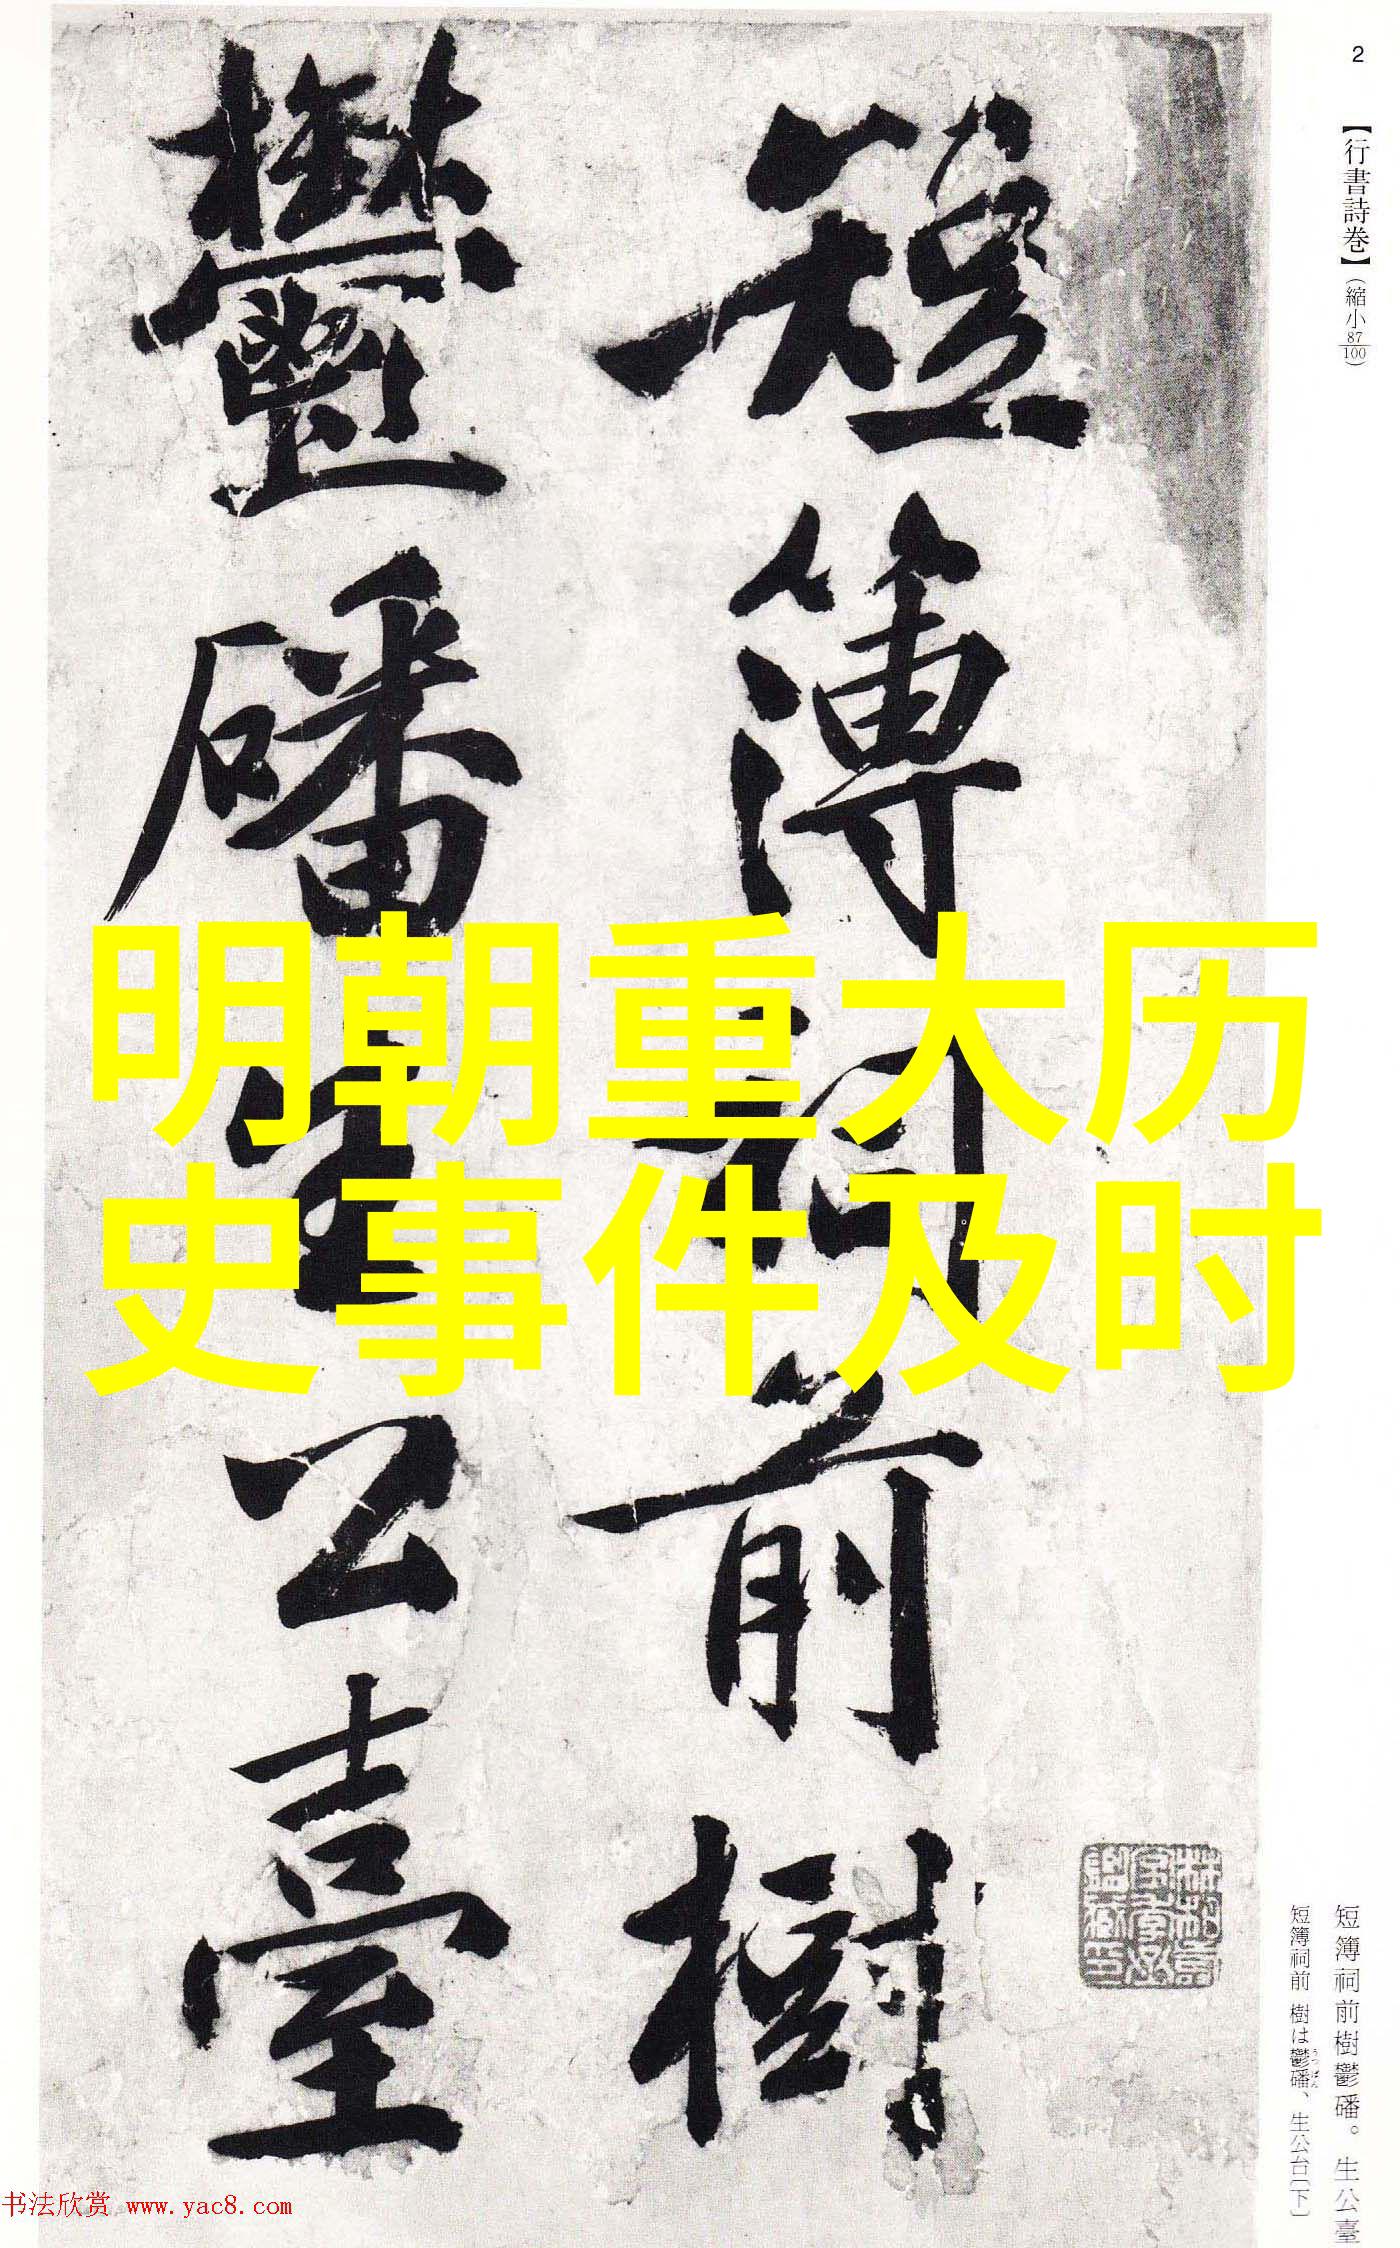 2
【行書詩巻】(縮小87/100)
短簿祠前樹
鬱磻生公臺
明朝重大历
史事件及时
短簿祠前樹鬱磻。生公臺
短簿祠前 樹は鬱磻、生公台〔下〕
うつばん
书法欣赏 www.yac8.com